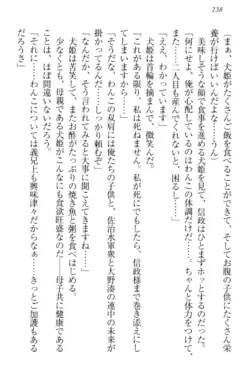 238
「まぁ、犬姫がたくさんご飯を食べることができて、そしてお腹の子供にたくさん栄
養が行けばいいんだけどな」
美味しそうな顔で食べる犬姫を見て、信政はひとまずホッとするのである。
「何せ、俺が心配しているのはわんこの体調だけだ……。ちゃんと体力をつけて、
一人目も産んでくれないと、困るし……」
犬姫は首輪を摘まんで、微笑んだ。
「これがある限り、私は死にません。でないと、信政様まで巻き添えにし
てしまいますから……」
「ああ、そうだな。わんこの双肩には俺たちの子供と、佐治水軍衆と大野湊の連中の未来が
掛かってるんだ。しっかり頼むぞ」
「なんだか、そう言われると大事に聞こえますね……」
犬姫は苦笑して、またお酢がたっぷりの焼き魚と粥を食べはじめた。
少なくとも、母親である犬姫がこんなにも食欲旺盛なのだ——母子共に健康である
ことは、ほぼ間違いないだろう。
「それに……わんこについては義兄上も興味津々だからなぁ……きっとご加護もある
だろうさ」